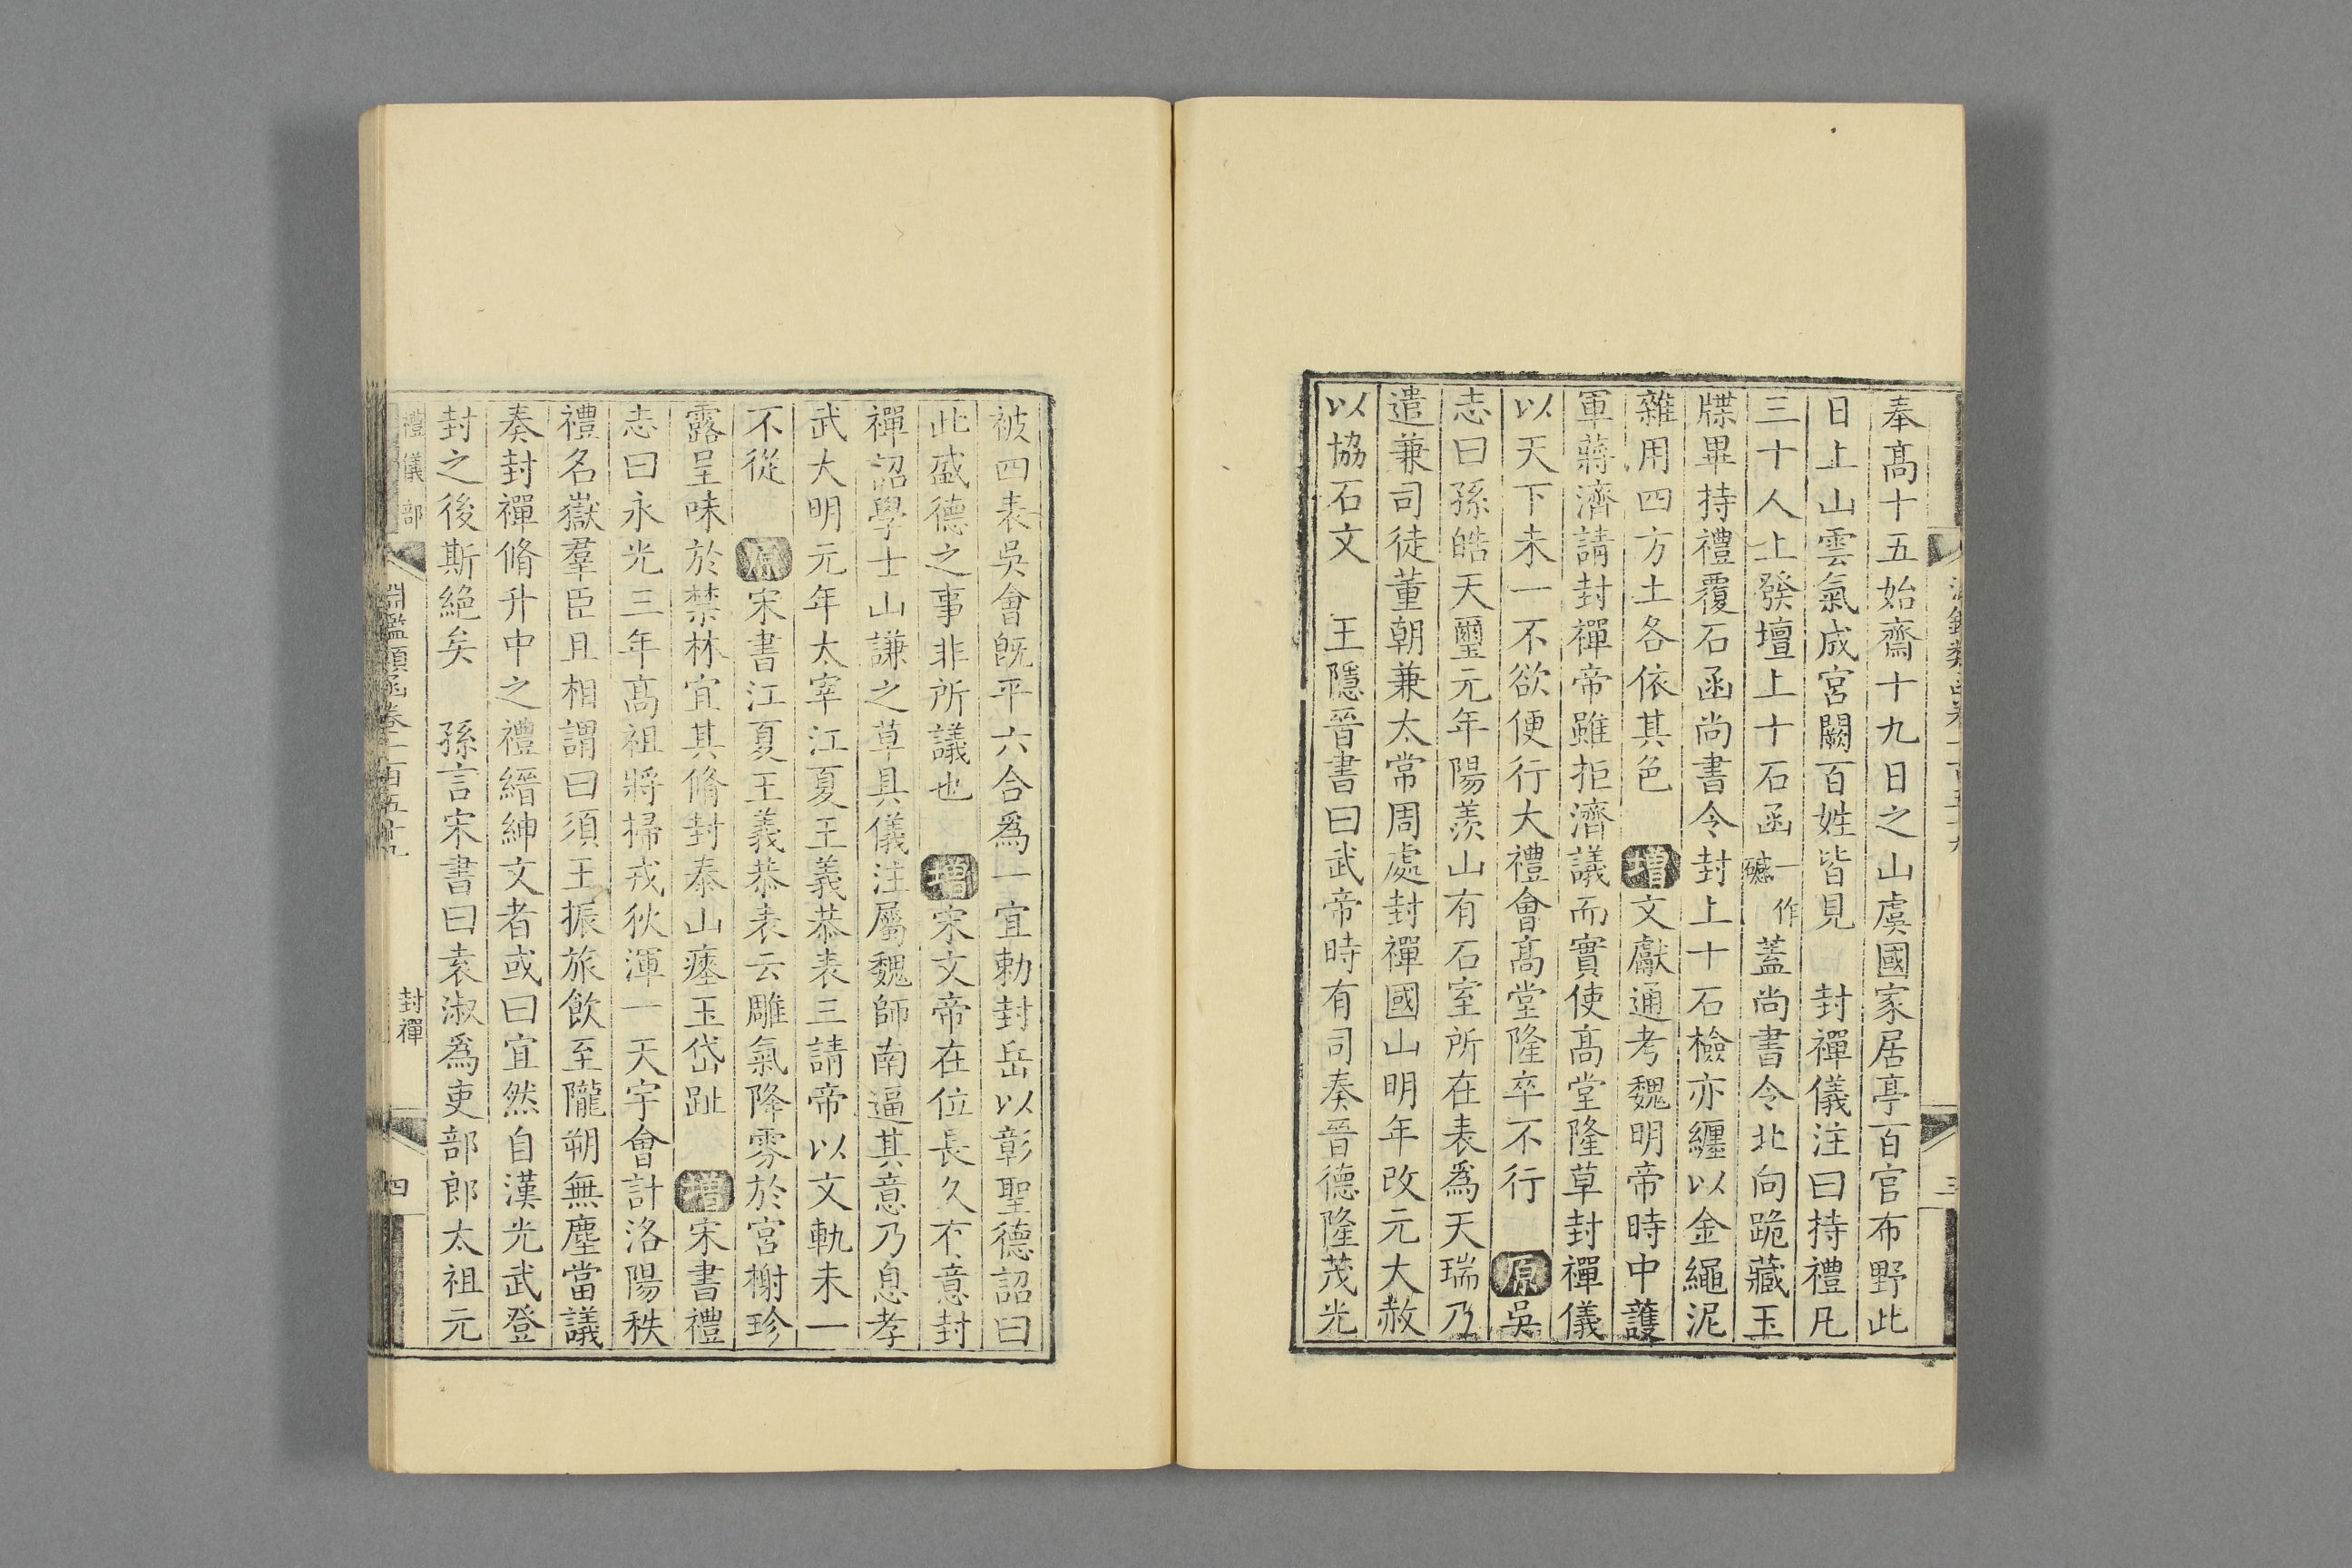 奉髙十五始齋十九日之山虞國家居亭百官布野此
日上山雲氣成宮闕百姓皆見 封禪儀注曰持禮凡
三十人上發壇上十石函一作𥖁蓋尚書令北向跪藏玉
牒畢持禮覆石函尚書令封上十石檢亦纒以金繩泥
雜用四方土各依其色 增文獻通考魏明帝時中護
軍蔣濟請封禪帝雖拒濟議而實使髙堂隆草封禪儀
以天下未一不欲便行大禮會髙堂隆卒不行 原吳
志曰孫皓天璽元年陽羨山有石室所在表爲天瑞乃
遣兼司徒董朝兼太常周處封禪國山明年改元大赦
以協石文 王隱晉書曰武帝時有司奏晉德隆茂光
被四表吳會旣平六合爲一宜勅封岳以彰聖德詔曰
此盛德之事非所議也 增宋文帝在位長久有意封
禪詔學士山謙之草具儀注屬魏師南逼其意乃息孝
武大明元年太宰江夏王義恭表三請帝以文軌未一
不從 原宋書江夏王義恭表云雕氣降雰於宮榭珍
露呈味於禁林宜其脩封泰山瘞玉岱趾 增宋書禮
志曰永光三年髙祖將掃戎狄渾一天宇會計洛陽秩
禮名嶽羣臣且相謂曰須王振旅飲至隴朔無塵當議
奏封禪脩升中之禮縉紳文者或曰宜然自漢光武登
封之後斯絶矣 孫言宋書曰袁淑爲吏部郎太祖元
禮儀部 淵鑑類函卷一百五十九 封禪 四